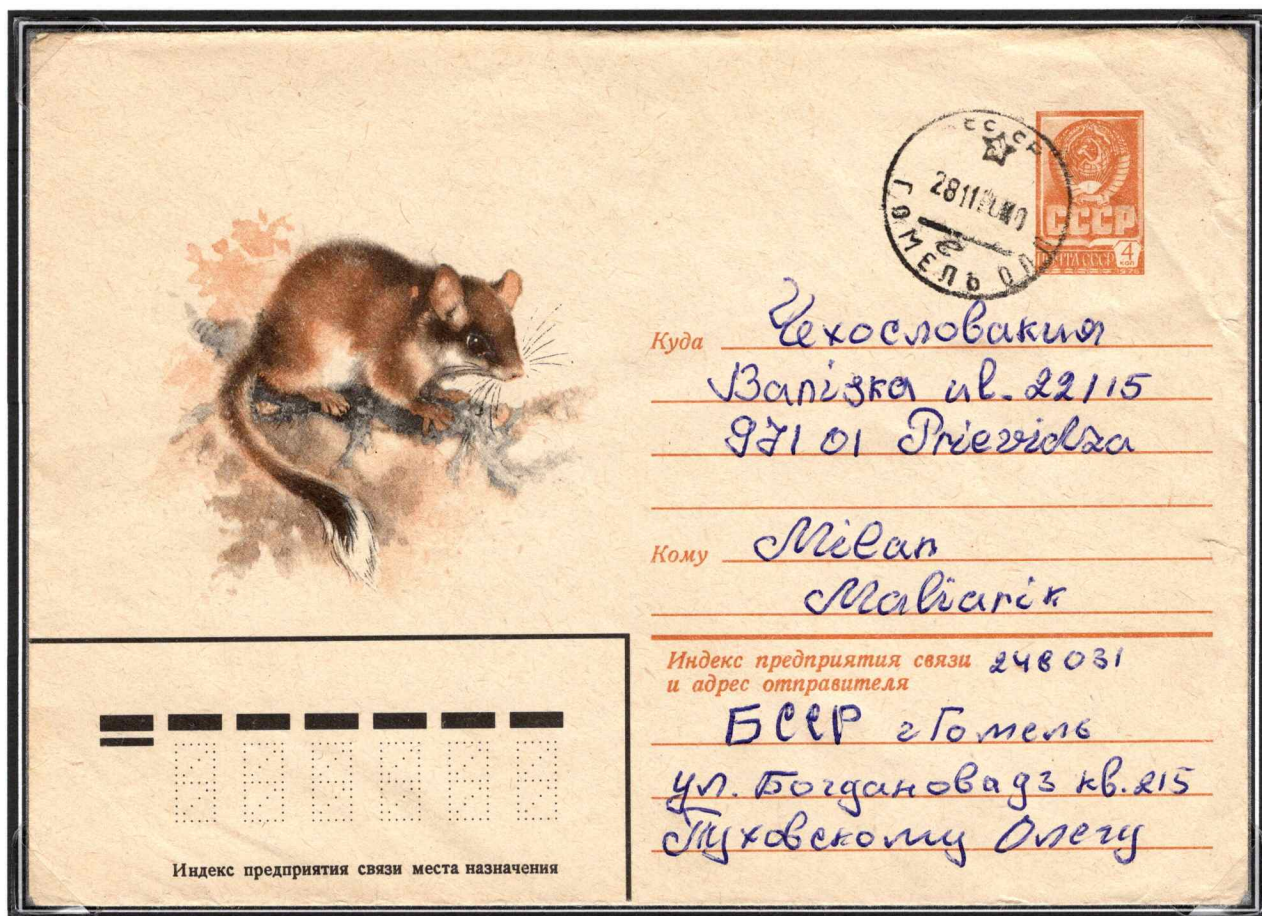 СССР
ГОМЕЛЬ
СССР
ПОЧТА СССР 4 КОП
1976
Куда Чехословакия
Banizka ul. 22/15
971 01 Prievidza
Кому Milan
Maliarik
Индекс предприятия связи 248031
и адрес отправителя
БССР г Гомель
ул. Богданова д3 кв.215
Пуховскому Олегу
Индекс предприятия связи места назначения